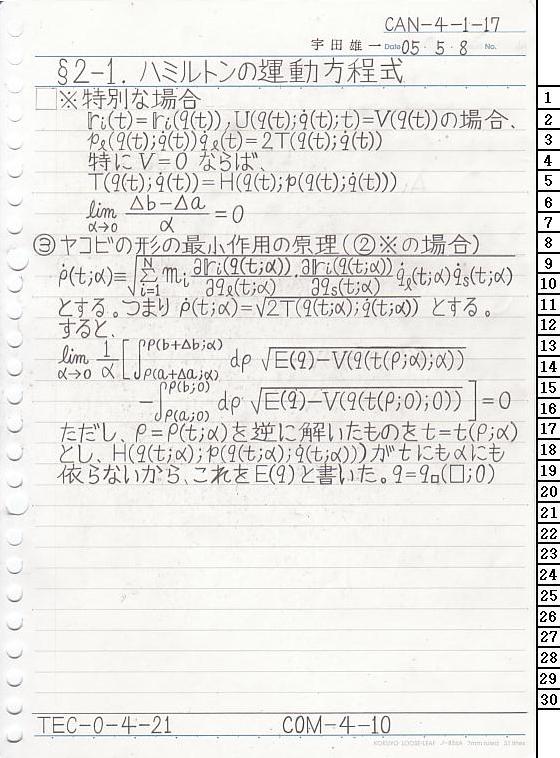 CAN-4-1-17
宇田雄一 Date 05・5・8 No.
§2-1. ハミルトンの運動方程式
□※特別な場合
𝕣i(t)=𝕣i(q(t)), U(q(t);q̇(t);t)=V(q(t))の場合、
pℓ(q(t);q̇(t))q̇ℓ(t)=2T(q(t);q̇(t))
特にV=0 ならば、
T(q(t);q̇(t))=H(q(t);p(q(t);q̇(t)))
lim α→0 (Δb-Δa)/α =0
③ヤコビの形の最小作用の原理(②※の場合)
ρ̇(t;α)≡√(Σ i=1 N mi ∂𝕣i(q(t;α))/∂qℓ(t;α) ∂𝕣i(q(t;α))/∂qs(t;α) q̇ℓ(t;α)q̇s(t;α))
とする。つまり ρ̇(t;α)=√(2T(q(t;α);q̇(t;α))) とする。
すると、
lim α→0 1/α [∫ρ(a+Δa;α) ρ(b+Δb;α) dρ √(E(q)-V(q(t(ρ;α);α)))
-∫ρ(a;0) ρ(b;0) dρ √(E(q)-V(q(t(ρ;0);0)))]=0
ただし、ρ=ρ(t;α)を逆に解いたものをt=t(ρ;α)
とし、H(q(t;α);p(q(t;α);q̇(t;α)))がtにもαにも
依らないから、これをE(q)と書いた。q=q□(□;0)
TEC-0-4-21 COM-4-10
KOKUYO LOOSE-LEAF ノ-836A 7mm ruled 31 lines
1
2
3
4
5
6
7
8
9
10
11
12
13
14
15
16
17
18
19
20
21
22
23
24
25
26
27
28
29
30